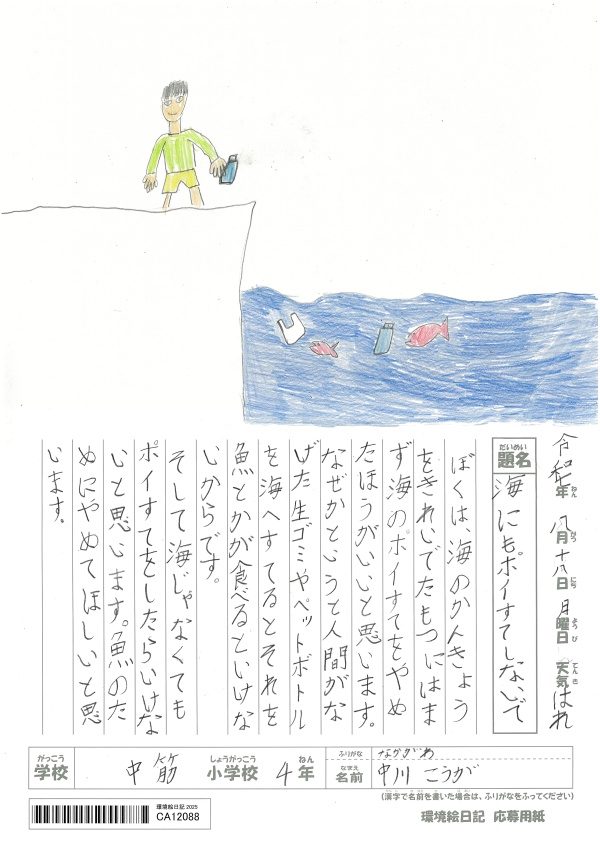 令和七年八月十八日月曜日天気はれ
ねん がつ にち ようび てんき
だいめい
題名 海にもポイすてしないで
ぼくは、海のかんきょう
をきれいでたもつにはま
ず海のポイすてをやめ
たほうがいいと思います。
なぜかというと人間がな
げた生ゴミやペットボトル
を海へすてるとそれを
魚とかが食べるといけな
いからです。
そして海じゃなくても
ポイすてをしたらいけな
いと思います。魚のた
めにやめてほしいと思
います。
がっこう しょうがっこう ねん
学校 中筋 小学校 4年
ふりがな なかがわ
なまえ
名前 中川 こうが
(漢字で名前を書いた場合は、ふりがなをふってください)
環境絵日記 2025
CA12088
環境絵日記 応募用紙